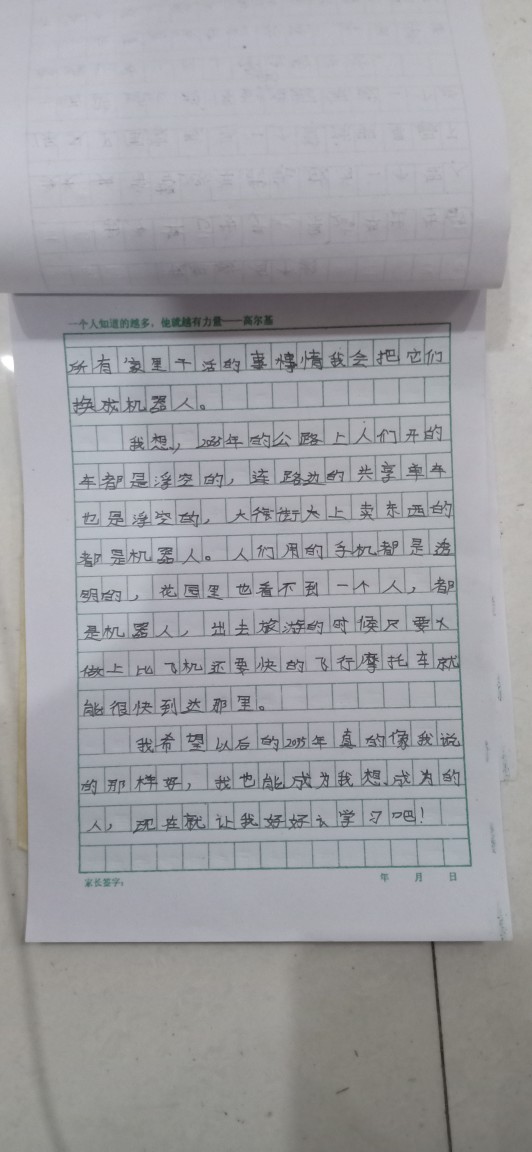 一个人知道的越多，他就越有力量——高尔基
所有家里干活的事情我会把它们
换成机器人。
我想，2035年的公路上人们开的
车都是浮空的，连路边的共享单车
也是浮空的，大街上卖东西的
都是机器人。人们用的手机都是透
明的，花园里也看不到一个人，都
是机器人，出去旅游的时候只要人
做上比飞机还要快的飞行摩托车就
能很快到达那里。
我希望以后的2035年真的像我说
的那样好，我也能成为我想成为的
人，现在就让我好好去学习吧！
家长签字： 年 月 日